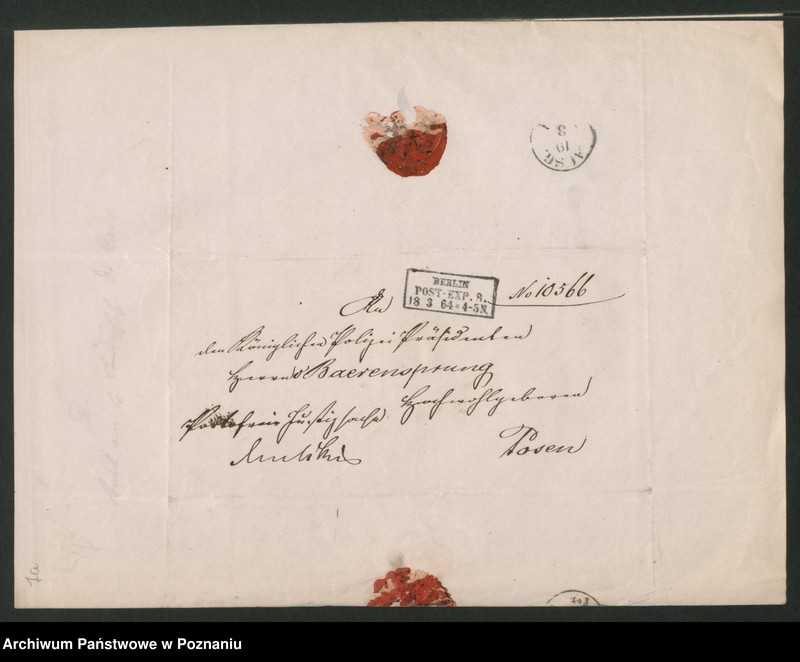 AUSG.
19
3
BERLIN
POST-EXP. 8.
18 3 64 * 4-5N.
No 10566
An
den Königlichen Polizei Präsidenten
Herrn Baerensprung
Hochwohlgeboren
Portofreie Justizsache
Posen
1a
Archiwum Państwowe w Poznaniu